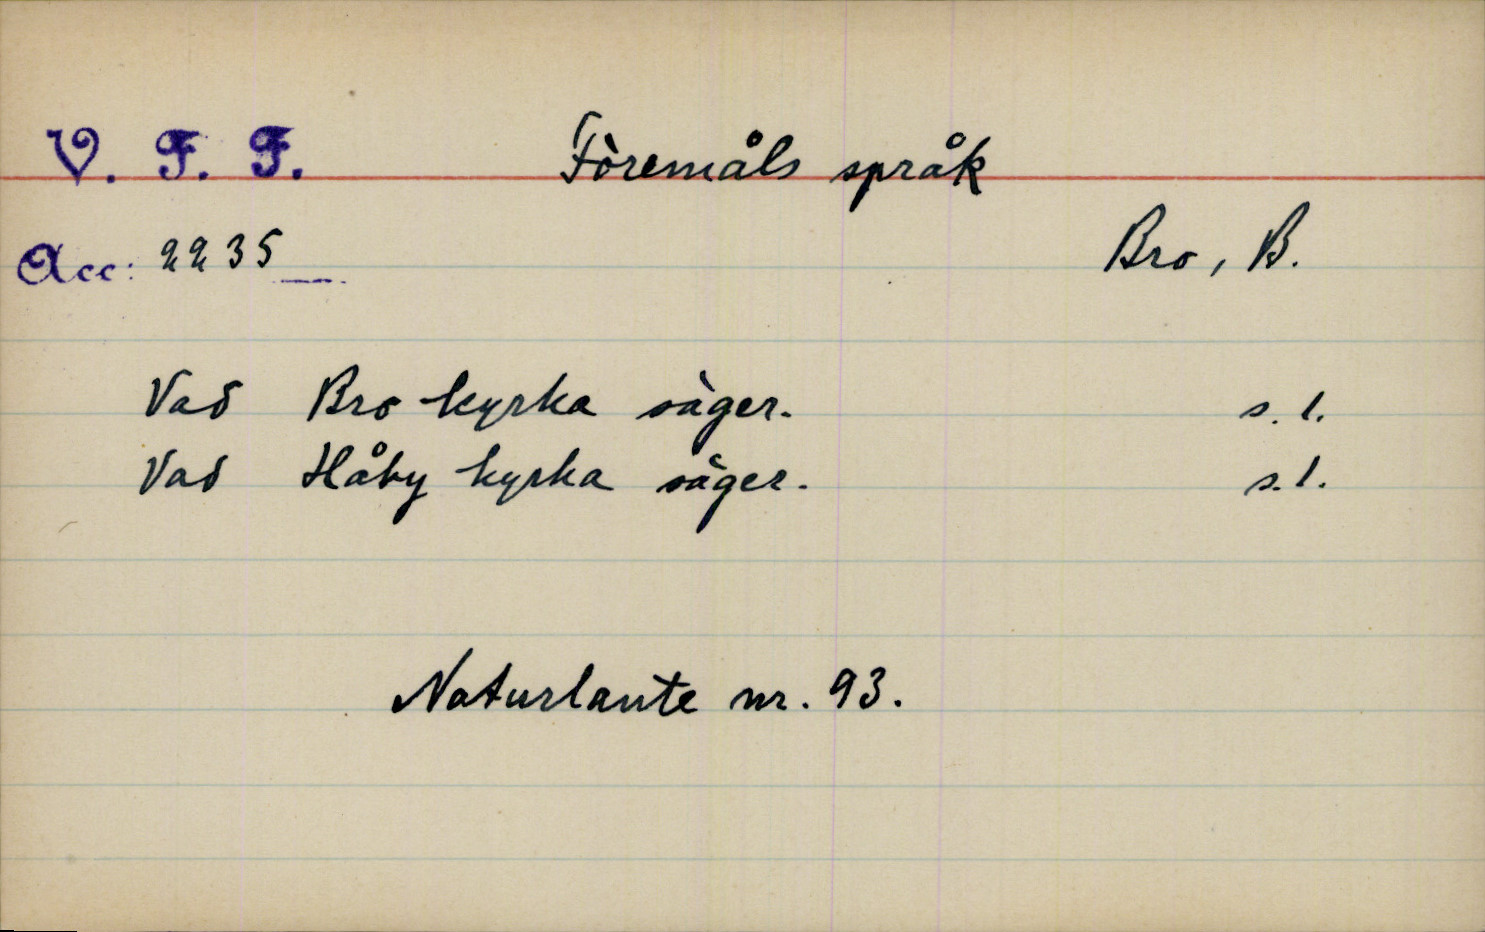 V. F. F. Föremåls språk
Acc: 2235 Bro, B.
Vad Bro kyrka säger. s. 1.
Vad Håby kyrka säger. s. 1.
Naturlaute nr. 93.